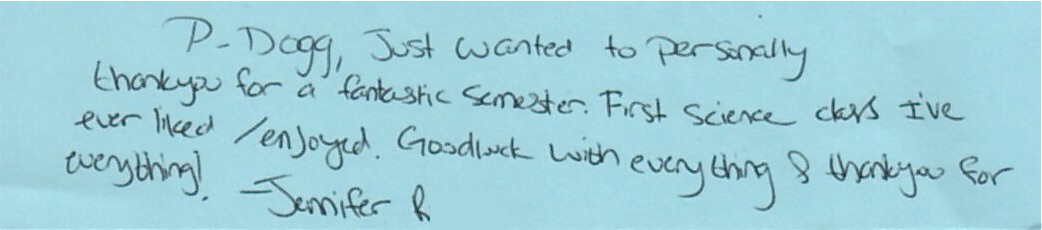 P-Dogg, Just wanted to personally
thankyou for a fantastic semester. First science class I've
ever liked /enjoyed. Goodluck with everything & thankyou for
everything!
-Jennifer R